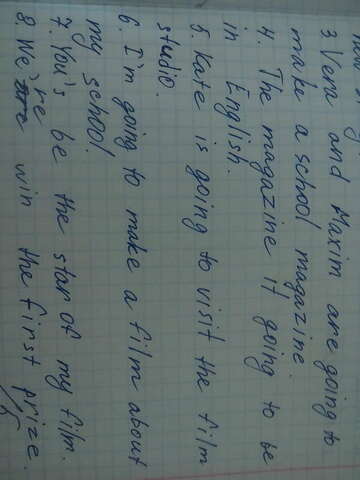 3 Vera and Maxim are going to
make a school magazine.
4. The magazine it going to be
in English.
5. Kate is going to visit the film
studio.
6. I'm going to make a film about
my school.
7. You's be the star of my film.
8 We're win the first prize.